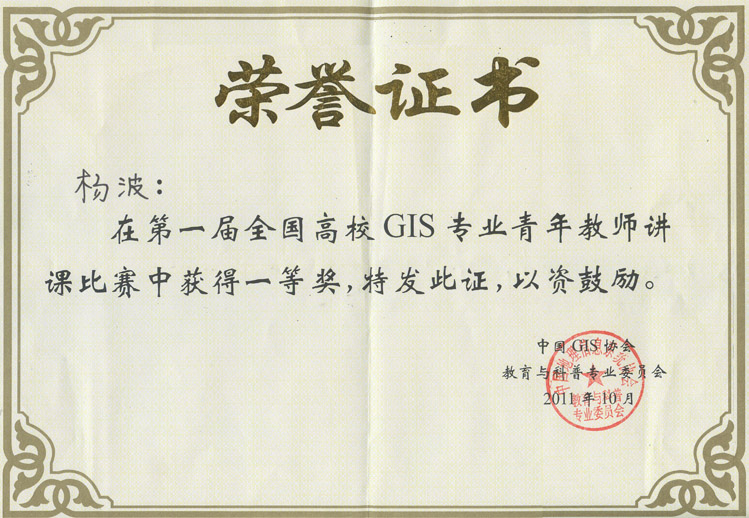 荣誉证书
杨波：
在第一届全国高校GIS专业青年教师讲
课比赛中获得一等奖，特发此证，以资鼓励。
中国GIS协会
教育与科普专业委员会
2011年10月
中国地理信息系统协会
教育与科普
专业委员会